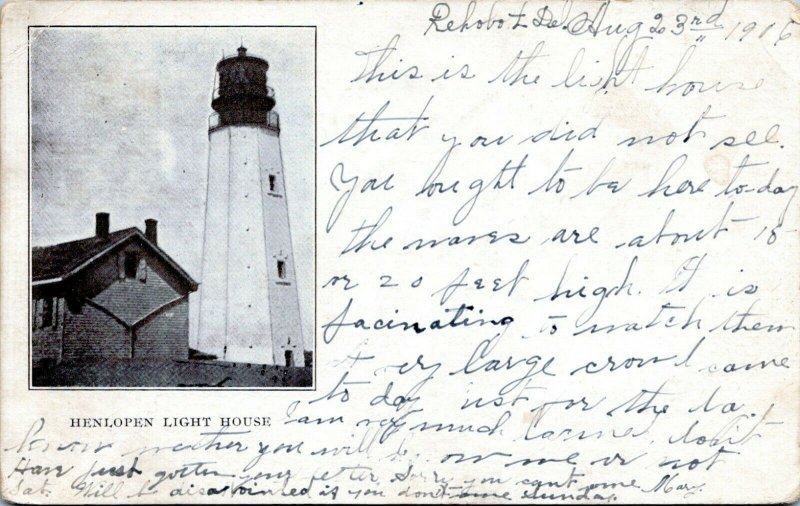 Rehobot Del. Aug 23rd 1906
This is the light house
that you did not see.
You ought to be here to-day
the waves are about 18
or 20 feet high. It is
facinating to watch them
A very large crowd came
to day just for the da.
HENLOPEN LIGHT HOUSE
I am not much tanned, don't
know weather you will know me or not
Have just gotten your letter Sorry you cant come Mary
Sat. Will be disapointed if you don't come Sunday.